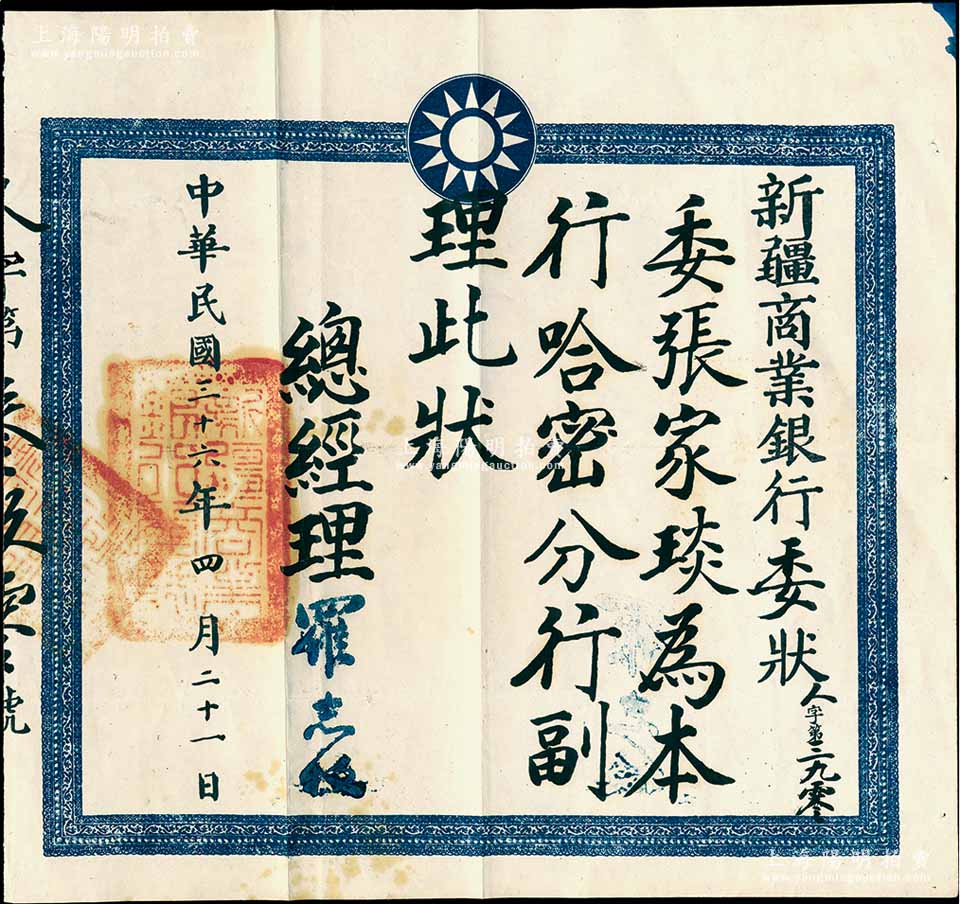 上海陽明拍賣
www.yangmingauction.com
新疆商業銀行委狀
人字第三九零
委張家琰為本
行哈密分行副
理此狀
總經理羅志枚
中華民國三十六年四月二十一日
人字第叁玖零號
上海陽明拍賣
www.yangmingauction.com
上海陽明拍賣
www.yangmingauction.com